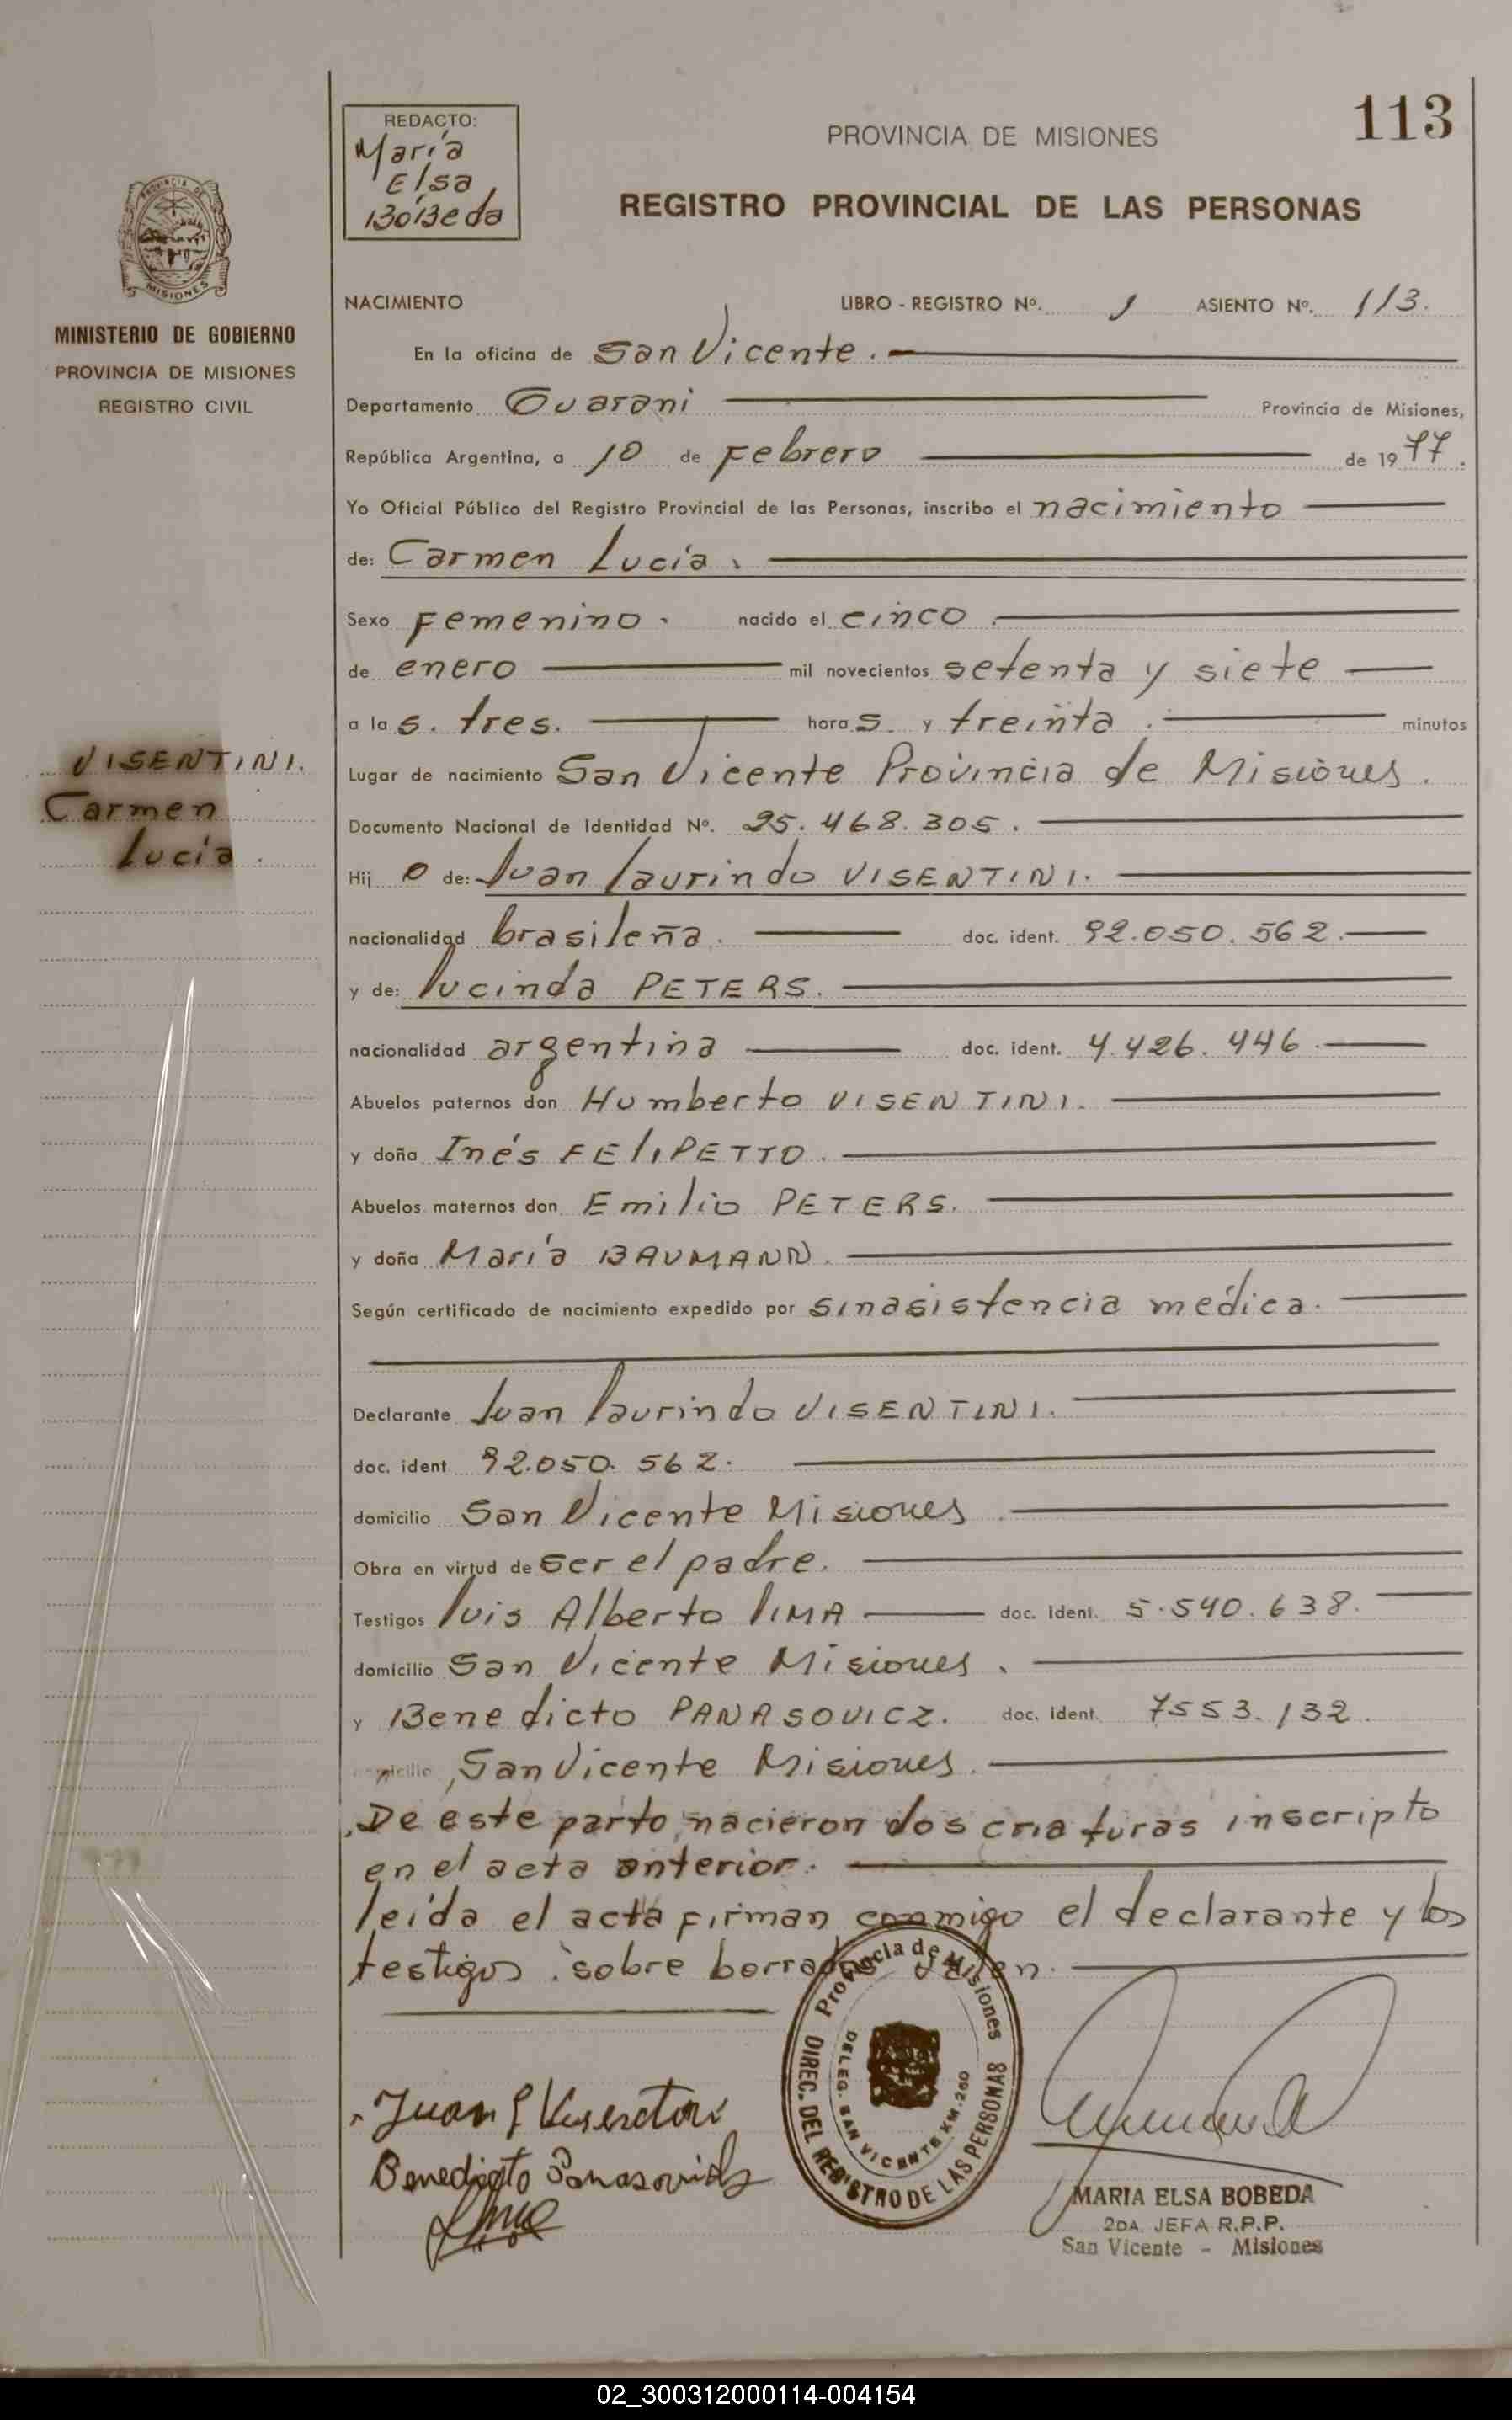 113
REDACTO:
María
Elsa
Bobeda
PROVINCIA DE MISIONES
REGISTRO PROVINCIAL DE LAS PERSONAS
MISIONES
MINISTERIO DE GOBIERNO
PROVINCIA DE MISIONES
REGISTRO CIVIL
VISENTINI.
Carmen
Lucía.
NACIMIENTO LIBRO - REGISTRO Nº. 1 ASIENTO Nº. 113.
En la oficina de San Vicente.
Departamento Guarani Provincia de Misiones,
República Argentina, a 10 de Febrero de 1977.
Yo Oficial Público del Registro Provincial de las Personas, inscribo el nacimiento
de: Carmen Lucía.
Sexo Femenino. nacido el cinco.
de enero mil novecientos setenta y siete
a las. tres. horas. y treinta. minutos
Lugar de nacimiento San Vicente Provincia de Misiones.
Documento Nacional de Identidad Nº. 25.468.305.
Hij o de: Juan Laurindo VISENTINI.
nacionalidad brasileña. doc. ident. 92.050.562.
y de: Lucinda PETERS.
nacionalidad argentina doc. ident. 4.426.446.
Abuelos paternos don Humberto VISENTINI.
y doña Inés FELIPETTO.
Abuelos maternos don Emilio PETERS.
y doña María BAUMANN.
Según certificado de nacimiento expedido por sinasistencia médica.
Declarante Juan Laurindo VISENTINI.
doc. ident 92.050.562.
domicilio San Vicente Misiones.
Obra en virtud de ser el padre.
Testigos Luis Alberto LIMA doc. Ident. 5.540.638.
domicilio San Vicente Misiones.
y Benedicto PANASOVICZ. doc. Ident. 7553.132.
domicilio San Vicente Misiones.
De este parto nacieron dos criaturas inscripto
en el acta anterior.
leída el acta firman conmigo el declarante y los
testigos. sobre borrados valen.
Provincia de Misiones
DIREC. DEL REGISTRO DE LAS PERSONAS
DELEG. SAN VICENTE KM. 260
Juan L Visentini
Benedicto Panasovicz
MARIA ELSA BOBEDA
2DA. JEFA R.P.P.
San Vicente - Misiones
02_300312000114-004154